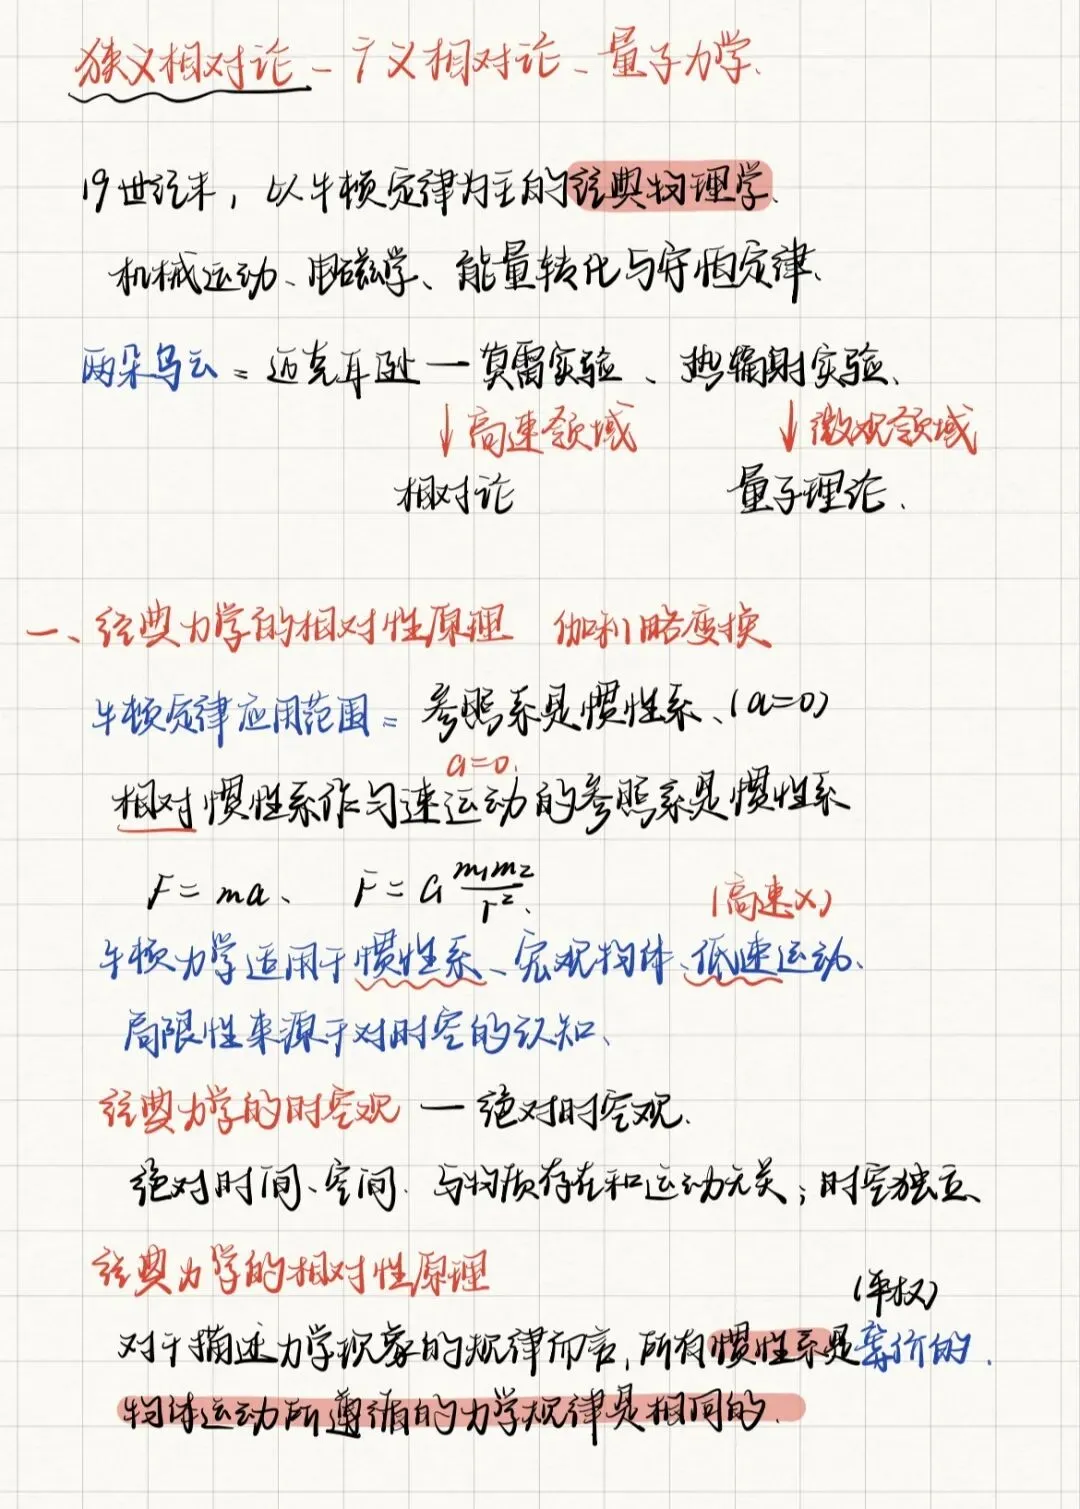 狭义相对论－广义相对论、量子力学.
19世纪末，以牛顿定律为主的经典物理学.
机械运动、电磁学、能量转化与守恒定律.
两朵乌云＝迈克耳逊一莫雷实验、热辐射实验、
↓高速领域 ↓微观领域
相对论 量子理论.
一、经典力学的相对性原理 伽利略变换
牛顿定律应用范围＝参照系是惯性系、(a=0)
a=0.
相对惯性系作匀速运动的参照系是惯性系
F=ma、 F=G m₁m₂/r².
(高速×)
牛顿力学适用于惯性系、宏观物体、低速运动.
局限性来源于对时空的认知、
经典力学的时空观 — 绝对时空观.
绝对时间、空间. 与物质存在和运动无关；时空独立、
经典力学的相对性原理
(平权)
对于描述力学现象的规律而言，所有惯性系是等价的.
物体运动所遵循的力学规律是相同的.